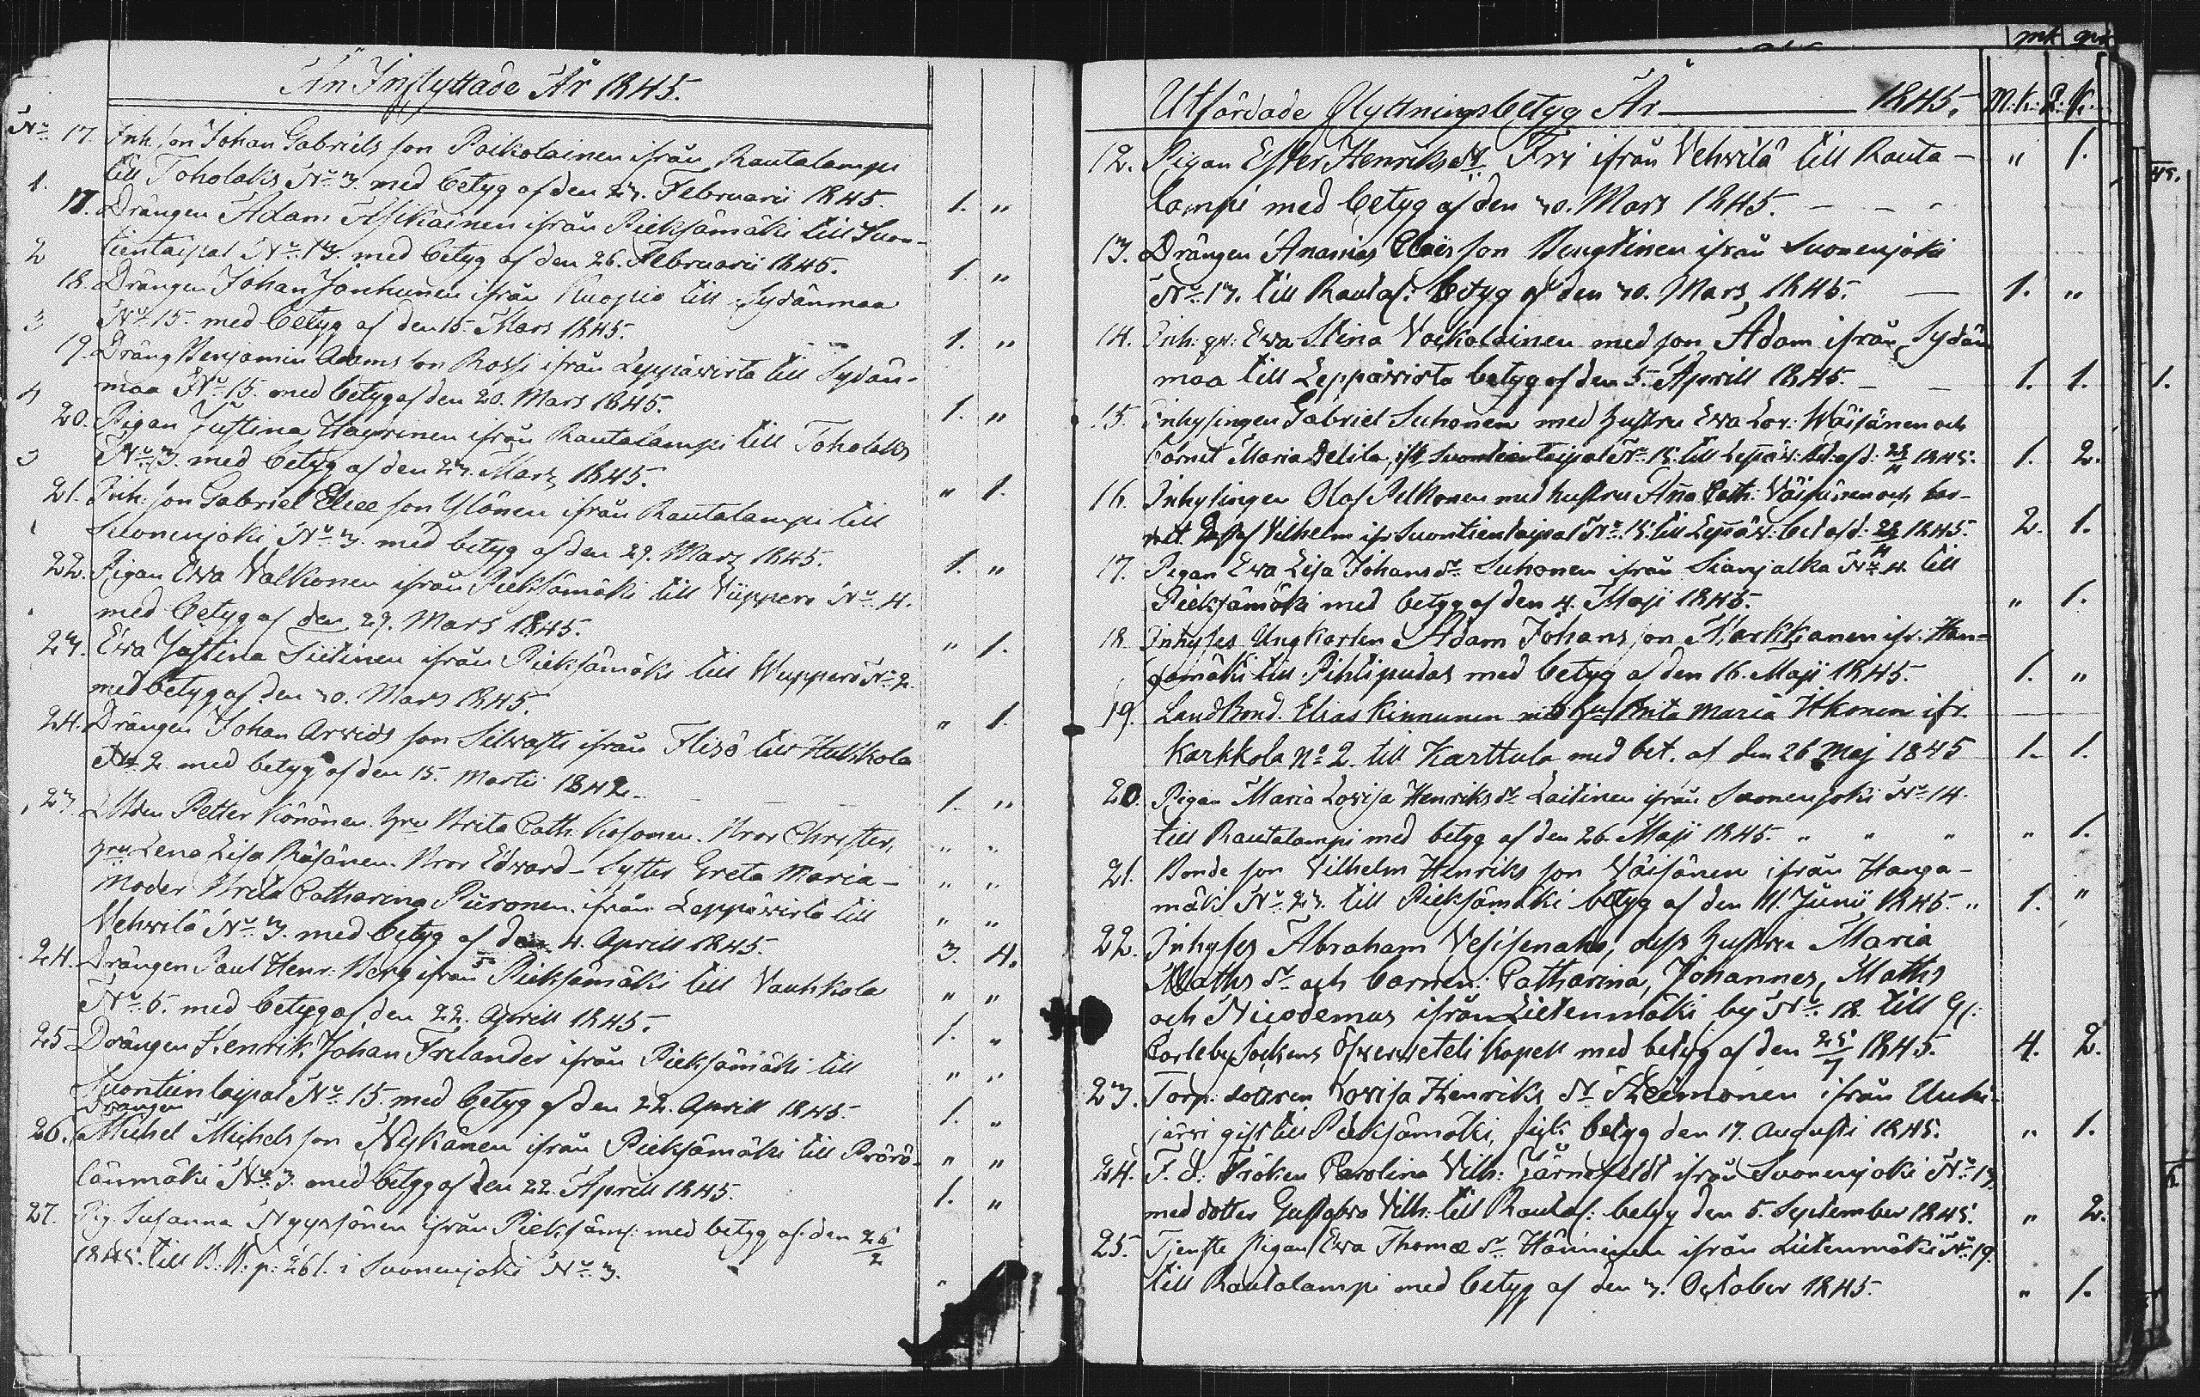 In Inflyttade År 1845.
No 17. Inh. son Johan Gabriels son Poikolainen ifrån Rautalampi
till Toholaks No 3. med betyg af den 27. Februarii 1845. 1. "
17. Drängen Adam Asikainen ifrån Pieksämäki till Suon-
tientaipal No 13. med betyg af den 26. Februarii 1845. 1. "
18. Drängen Johan Jonhunen ifrån Kuopio till Sydänmaa
No 15. med betyg af den 15. Mars 1845. 1. "
19. Dräng Benjamin Adams son Rossi ifrån Leppävirta till Sydän-
maa No 15. med betyg af den 20. Mars 1845. 1. "
20. Pigan Justina Hayrinen ifrån Rautalampi till Toholaks
No 3. med betyg af den 27. Mars 1845. " 1.
21. Inh: son Gabriel Eliæ son Ylönen ifrån Rautalampi till
Suonenjoki No 3. med betyg af den 29. Mars 1845. 1. "
22. Pigan Ewa Valkonen ifrån Pieksämäki till Viippero No 4.
med betyg af den 29. Mars 1845. " 1.
23. Ewa Justina Siitinen ifrån Pieksämäki till Wipperö No 2.
med betyg af den 30. Mars 1845. " 1.
24. Drängen Johan Arvids son Silvasti ifrån Ilisö till Hulkkola
No 2 med betyg af den 15. Martii 1842 1. "
23. Petter Könönen hru Brita Cath. Kosonen. Bror Christer,
hru Lena Lisa Räsänen. Bror Edward - Syster Greta Maria -
Moder Brita Catharina Puronen ifrån Leppävirta till
Vehvilä No 3. med betyg af den 4. April 1845. 3. 4.
24. Drängen Paul Henr: Berg ifrån Pieksämäki till Vauhkola
No 5. med betyg af den 22. April 1845. 1. "
25 Drängen Henrik Johan Frilander ifrån Pieksämäki till
Suontientaipal No 15. med betyg af den 22. April 1845. 1. "
Drängen
26. Michel Michels son Nyskänen ifrån Pieksämäki till Pörö-
länmäki No 3. med betyg af den 22. April 1845. 1. "
27. Pig. Susanna Nyyssönen ifrån Pieksäm: med betyg af den 26/2
1845. till B. K. p: 261. i Suonenjoki No 3.
Utfärdade Flyttningsbetyg År 1845. M.K. Q.K.
12. Pigan Ester Henriks Dr Fri ifrån Vehvilä till Rauta- " 1.
lampi med betyg af den 30. Mars 1845.
13. Drängen Ananias Claës son Bengtinen ifrån Suonenjoki
No 17. till Rautal: betyg af den 30. Mars 1845. 1. "
14. Inh: qv: Ewa Stina Vockolainen med son Adam ifrån Sydän
maa till Leppävirta betyg af den 5. Aprill 1845. 1. 1.
15. Inhysingen Gabriel Suhonen med hustru Ewa Lov: Wäisänen och
barnet Maria Delila, ifr. Suontientaipal No 15. till Leppäv: bet: af d: 23/4 1845. 1. 2.
16. Inhysingen Olof Pelkonen med hustru Anna Cath: Väisänen och bar-
net Vilhelm ifr Suontientaipal No 15. till Leppäv: bet af d: 23/4 1845. 2. 1.
17. Pigan Ewa Lisa Johans Dr Suhonen ifrån Sianjalka No 4 till
Pieksämäki med betyg af den 4. Maji 1845. " 1.
18. Inhyses Ungkarlen Adam Johans son Markkanen ifr. Han-
gamäki till Pihtipudas med betyg af den 16. Maji 1845. 1. "
19. Landbond. Elias Kinnunen med hu Brita Maria Itkonen ifr.
Karkkola No 2. till Karttula med bet. af den 26 Maj 1845 1. 1.
20. Pigan Maria Lovisa Henriks Dr Laitinen ifrån Suonenjoki No 14.
till Rautalampi med betyg af den 26. Maji 1845. " " " " 1.
21. Bonde son Vilhelm Henriks son Väisänen ifrån Hanga-
mäki No 23. till Pieksämäki betyg af den 11. Junii 1845. " 1. "
22. Inhyses Abraham Vesisenaho, dess hustru Maria
Maths Dr och barnen: Catharina, Johannes, Maths
och Nicodemus ifrån Lietenmäki by No 18. till Gl:
Carleby Sockens Öfververeteli Kapell med betyg af den 25/7 1845. 4. 2.
23. Torp. dottren Lovisa Henriks Dr Heimonen ifrån Uuki-
järvi gift till Pieksämäki, fick betyg den 17. Augusti 1845. " 1.
24. F. d: Fröken Carolina Vilh: Järnefeldt ifrån Suonenjoki No 13.
med dotter Gustafva Vilh: till Rautal: betyg den 5. September 1845. " 2.
25. Tjenste pigan Ewa Thomæ Dr Hänninen ifrån Lietenmäki No 19.
till Rautalampi med betyg af den 3. October 1845. " 1.